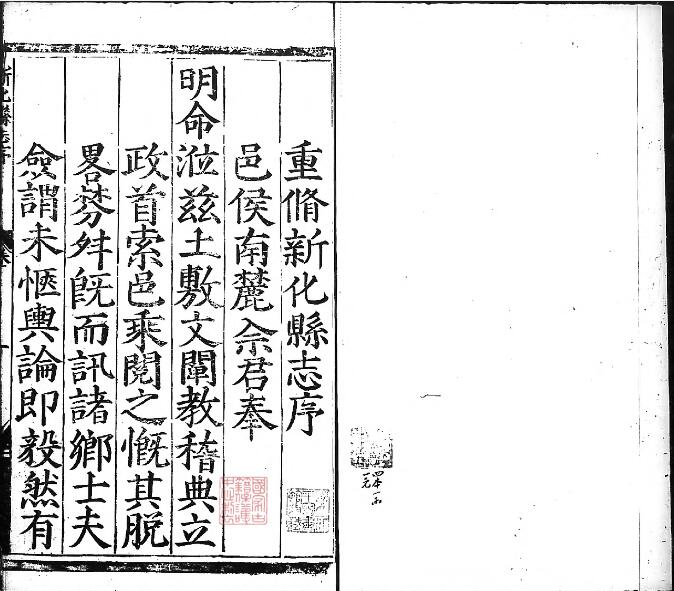 重脩新化縣志序
邑侯南麓佘君奉
明命涖茲土敷文闡教稽典立
政首索邑乘閱之慨其脫
畧棼舛旣而訊諸鄉士夫
僉謂未愜輿論即毅然有
新化縣志序